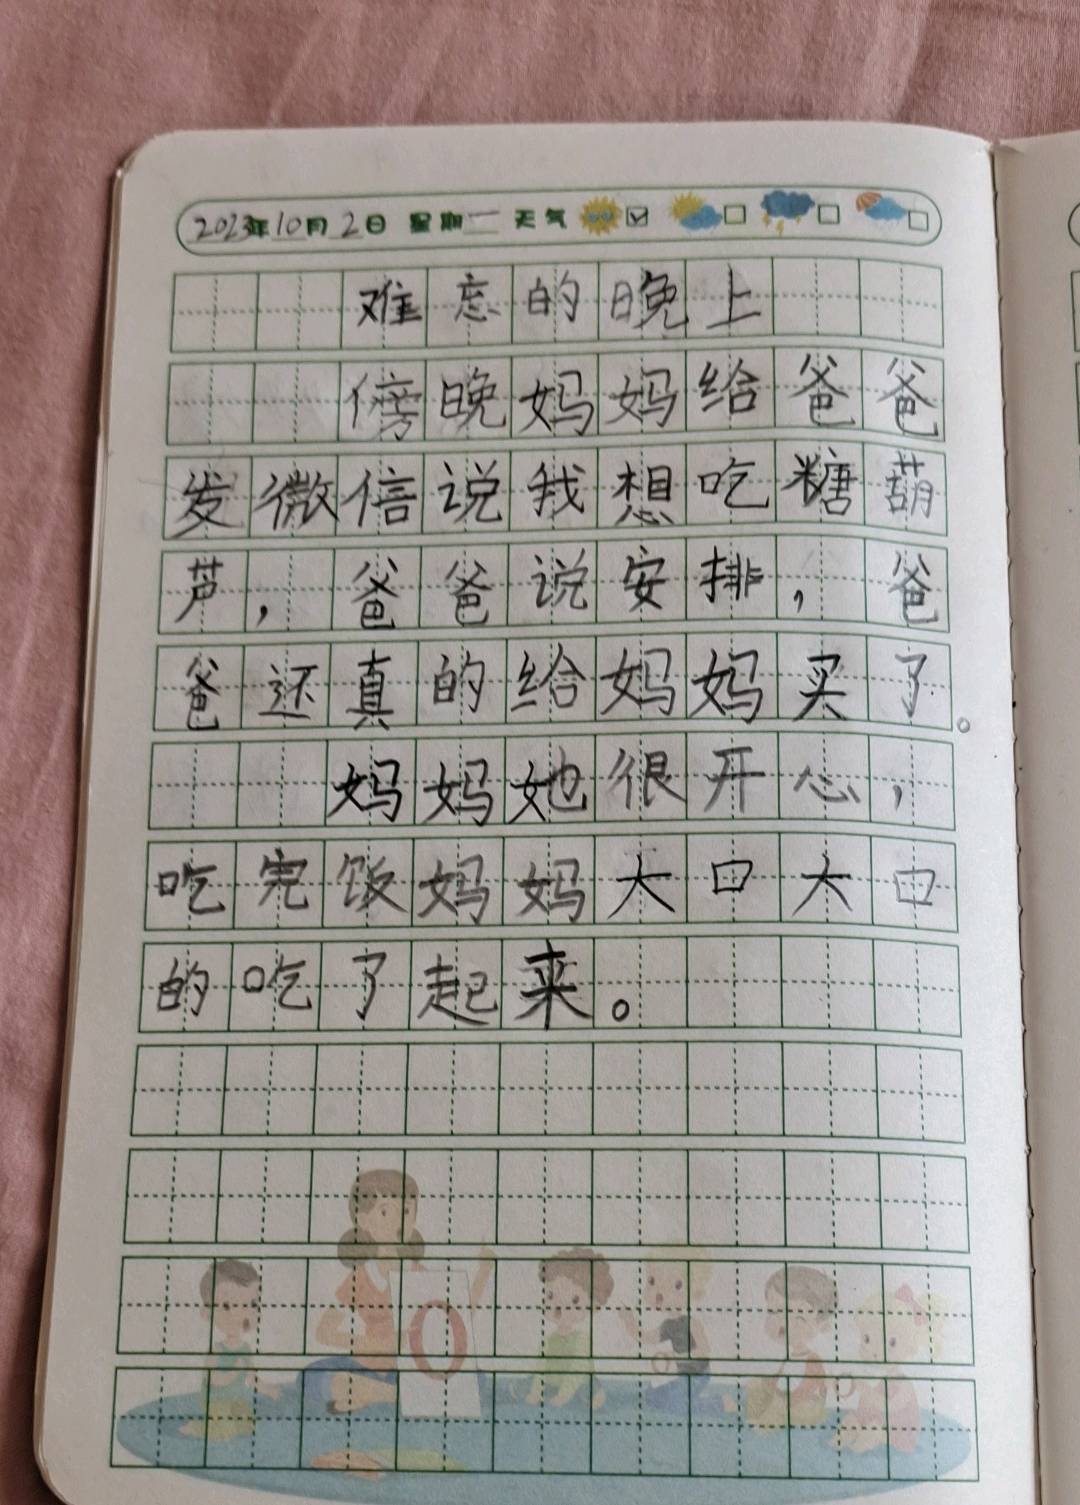 2023年10月2日 星期一 天气
难忘的晚上
傍晚妈妈给爸爸
发微信说我想吃糖葫
芦，爸爸说安排，爸
爸还真的给妈妈买了。
妈妈她很开心，
吃完饭妈妈大口大口
的吃了起来。